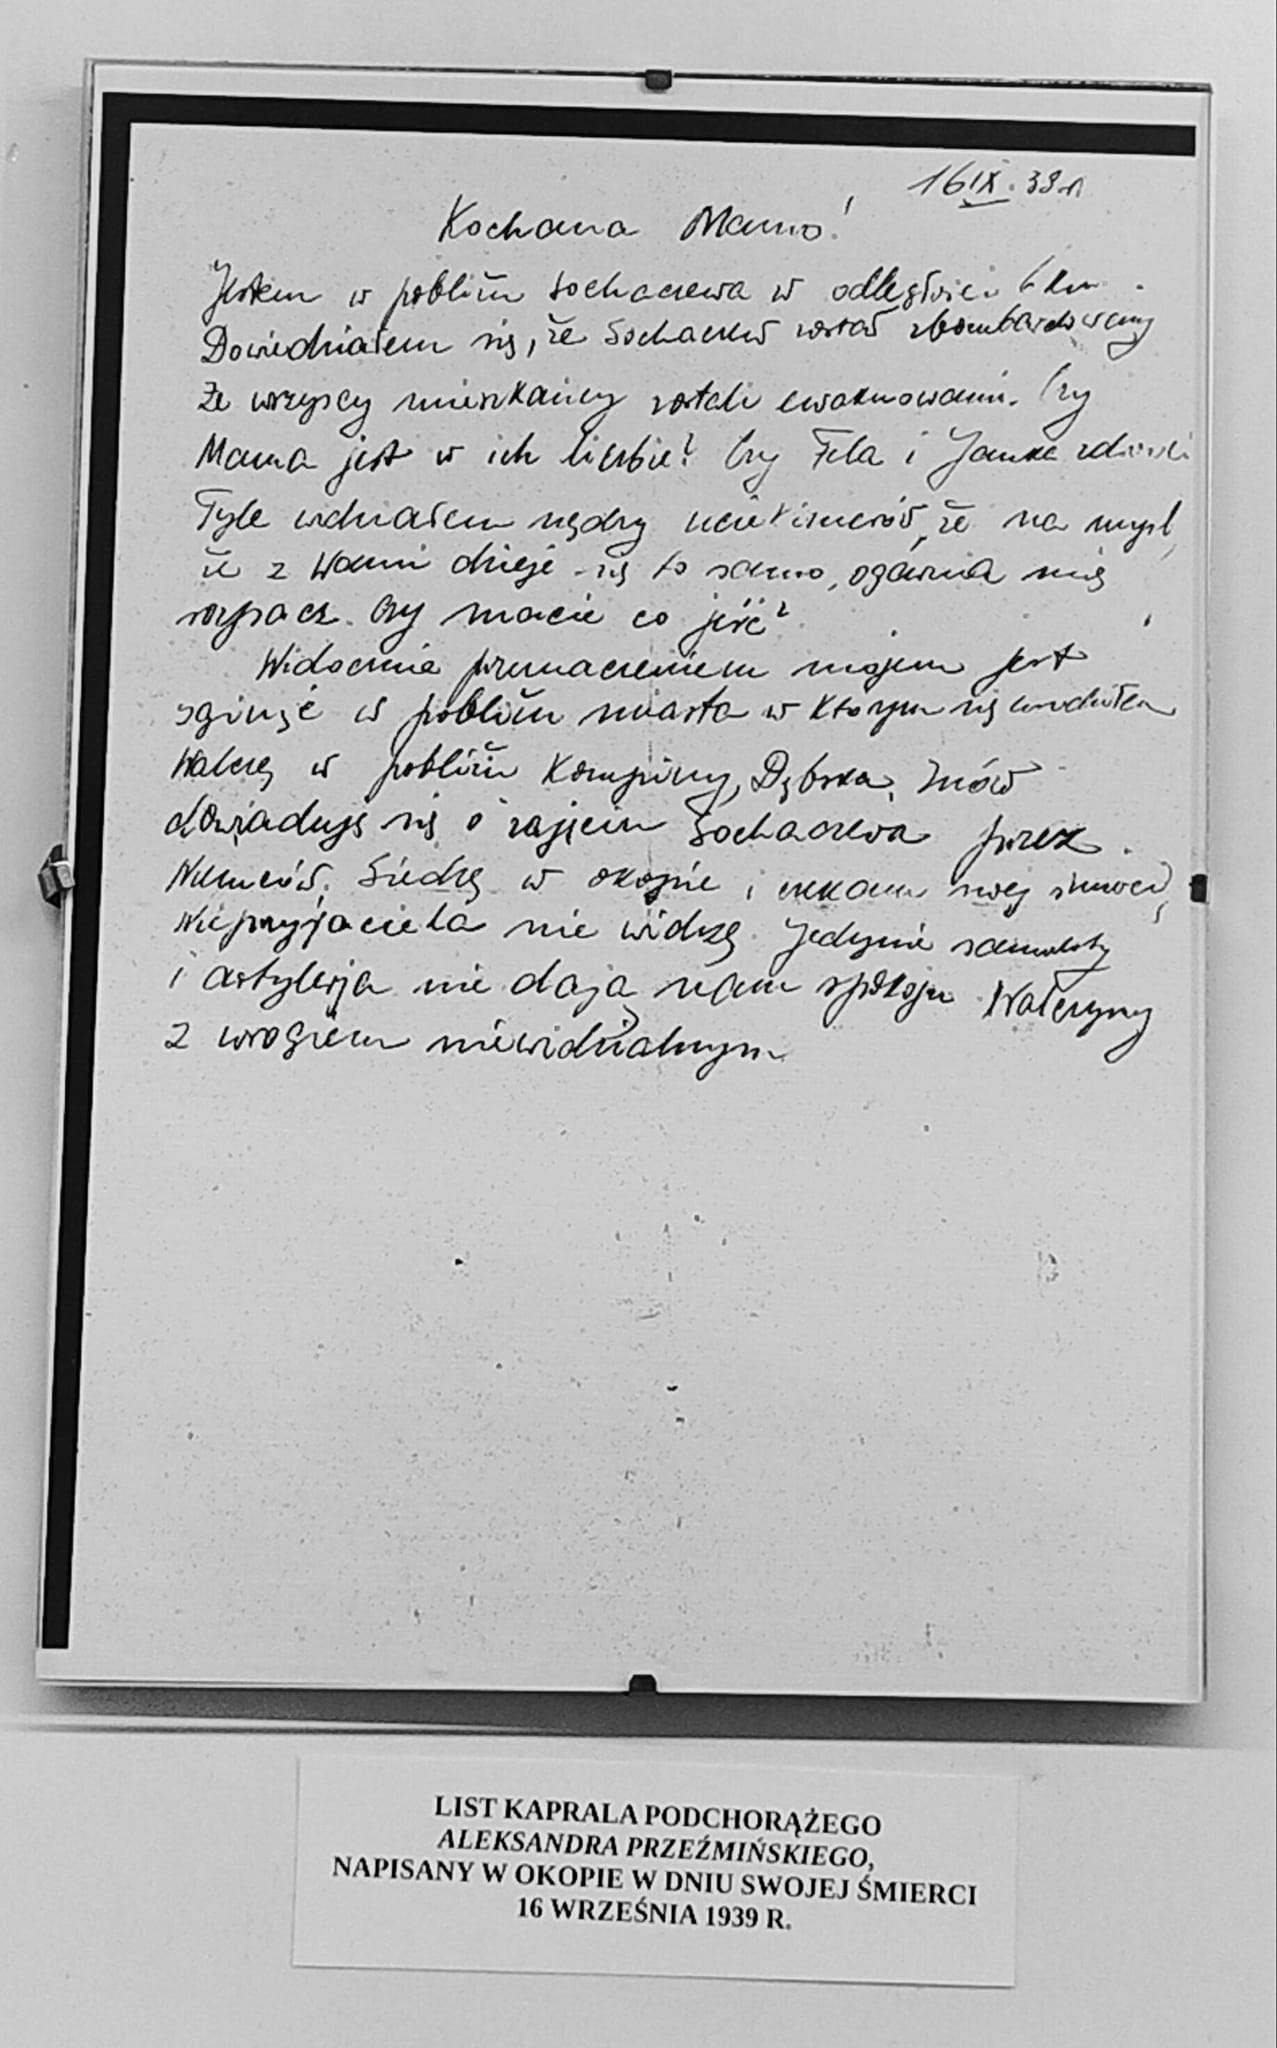 16 IX. 39 r
Kochana Mamo!
Jestem w pobliżu Sochaczewa w odległości 6 km.
Dowiedziałem się, że Sochaczew został zbombardowany
że wszyscy mieszkańcy zostali ewakuowani. Czy
Mama jest w ich liczbie? Czy Fela i Janka zdrowi
Tyle widziałem nędzy uciekinierów, że na myśl,
że z Wami dzieje się to samo, ogarnia mię
rozpacz. Czy macie co jeść?
Widocznie przeznaczeniem mojem jest
zginąć w pobliżu miasta w którym się urodziłem
Walczę w pobliżu Kompiny, Dębska. Znów
dowiaduję się o zajęciu Sochaczewa przez
Niemców. Siedzę w okopie i czekam swej śmierci,
Nieprzyjaciela nie widzę. Jedynie samoloty
i artylerja nie dają nam spokoju. Walczymy
z wrogiem niewidzialnym
LIST KAPRALA PODCHORĄŻEGO
ALEKSANDRA PRZEŹMIŃSKIEGO,
NAPISANY W OKOPIE W DNIU SWOJEJ ŚMIERCI
16 WRZEŚNIA 1939 R.